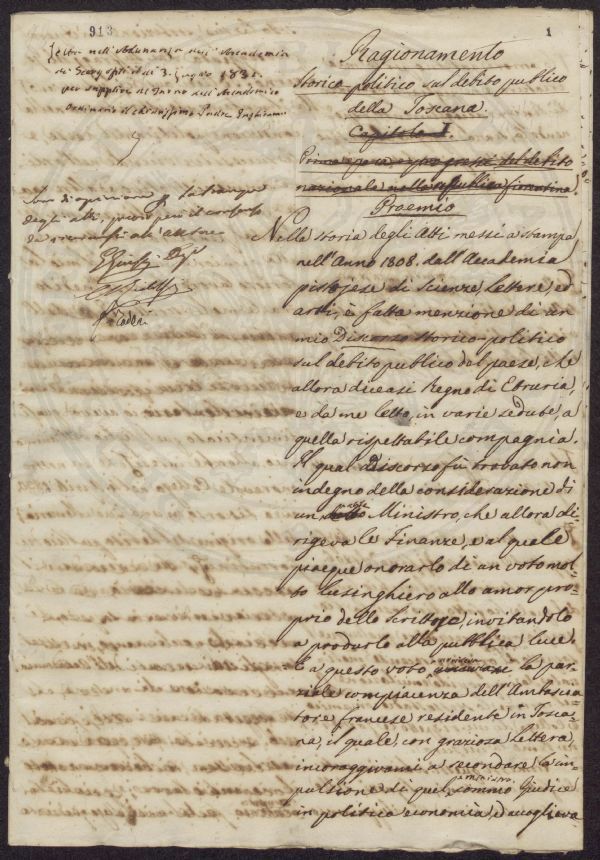 913
1
Letto nell'Adunanza dell'Accademia
de' Georgofili del 3. Giugno 1832.
per supplire al turno dell'Accademico
Ordinario il chiarissimo Padre Inghirami.
Ragionamento
Storico-politico sul debito pubblico
della Toscana.
Capitolo I.
Prima epoca, e progressi del debito
nazionale nella repubblica fiorentina
Proemio
Sono di opinione la stampa
degli atti, previo però il
da all'autore
Nella storia degli Atti messi a stampa
nell'Anno 1808. dall'Accademia
pistojese di Scienze, Lettere, ed
arti, è fatta menzione di un
mio Discorso storico-politico
sul debito pubblico del paese, che
allora diceasi Regno di Etruria,
e da me letto, in varie sedute, a
quella rispettabile compagnia.
Il qual discorso fù trovato non
indegno della considerazione di
un Ministro, che allora di-
rigeva le Finanze, e al quale
piacque onorarlo di un voto mol-
to lusinghiero allo amor pro-
prio dello Scrittore, invitandolo
a produrlo alla pubblica luce.
E a questo voto la par-
ziale compiacenza dell'Ambascia-
tore francese residente in Tosca-
na, il quale, con graziosa lettera,
incoraggivami a secondare la im-
pulsione di quel sommo Giudice
in politica economia, e accoglieva